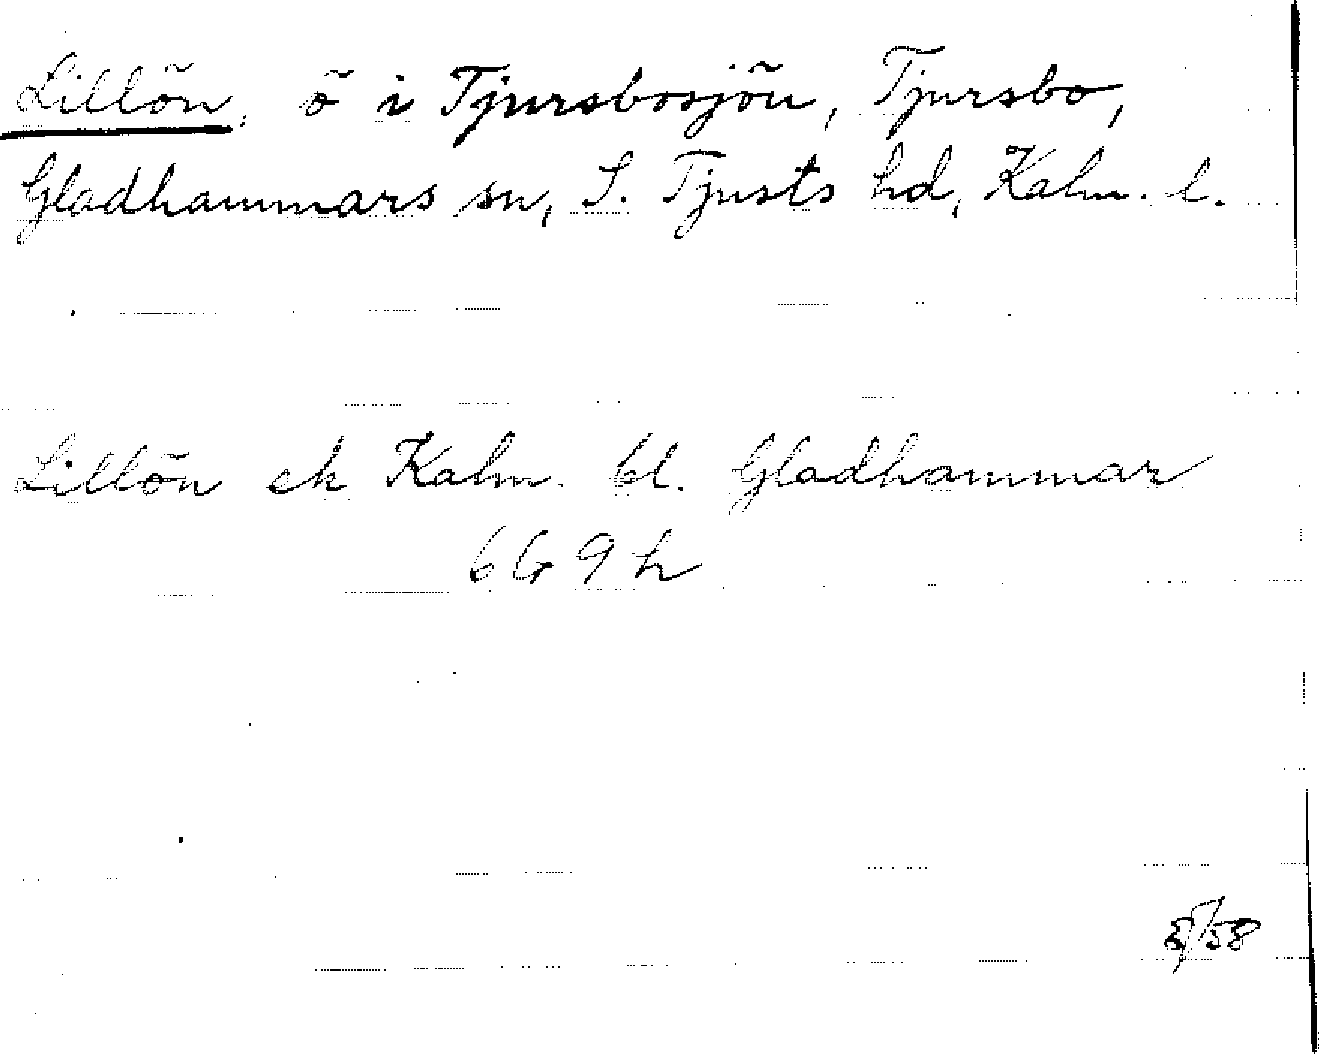 Lillön, ö i Tjursbosjön, Tjursbo,
Gladhammars sn, S. Tjusts hd, Kalm. l.
Lillön ek Kalm. bl. Gladhammar
6G 9h